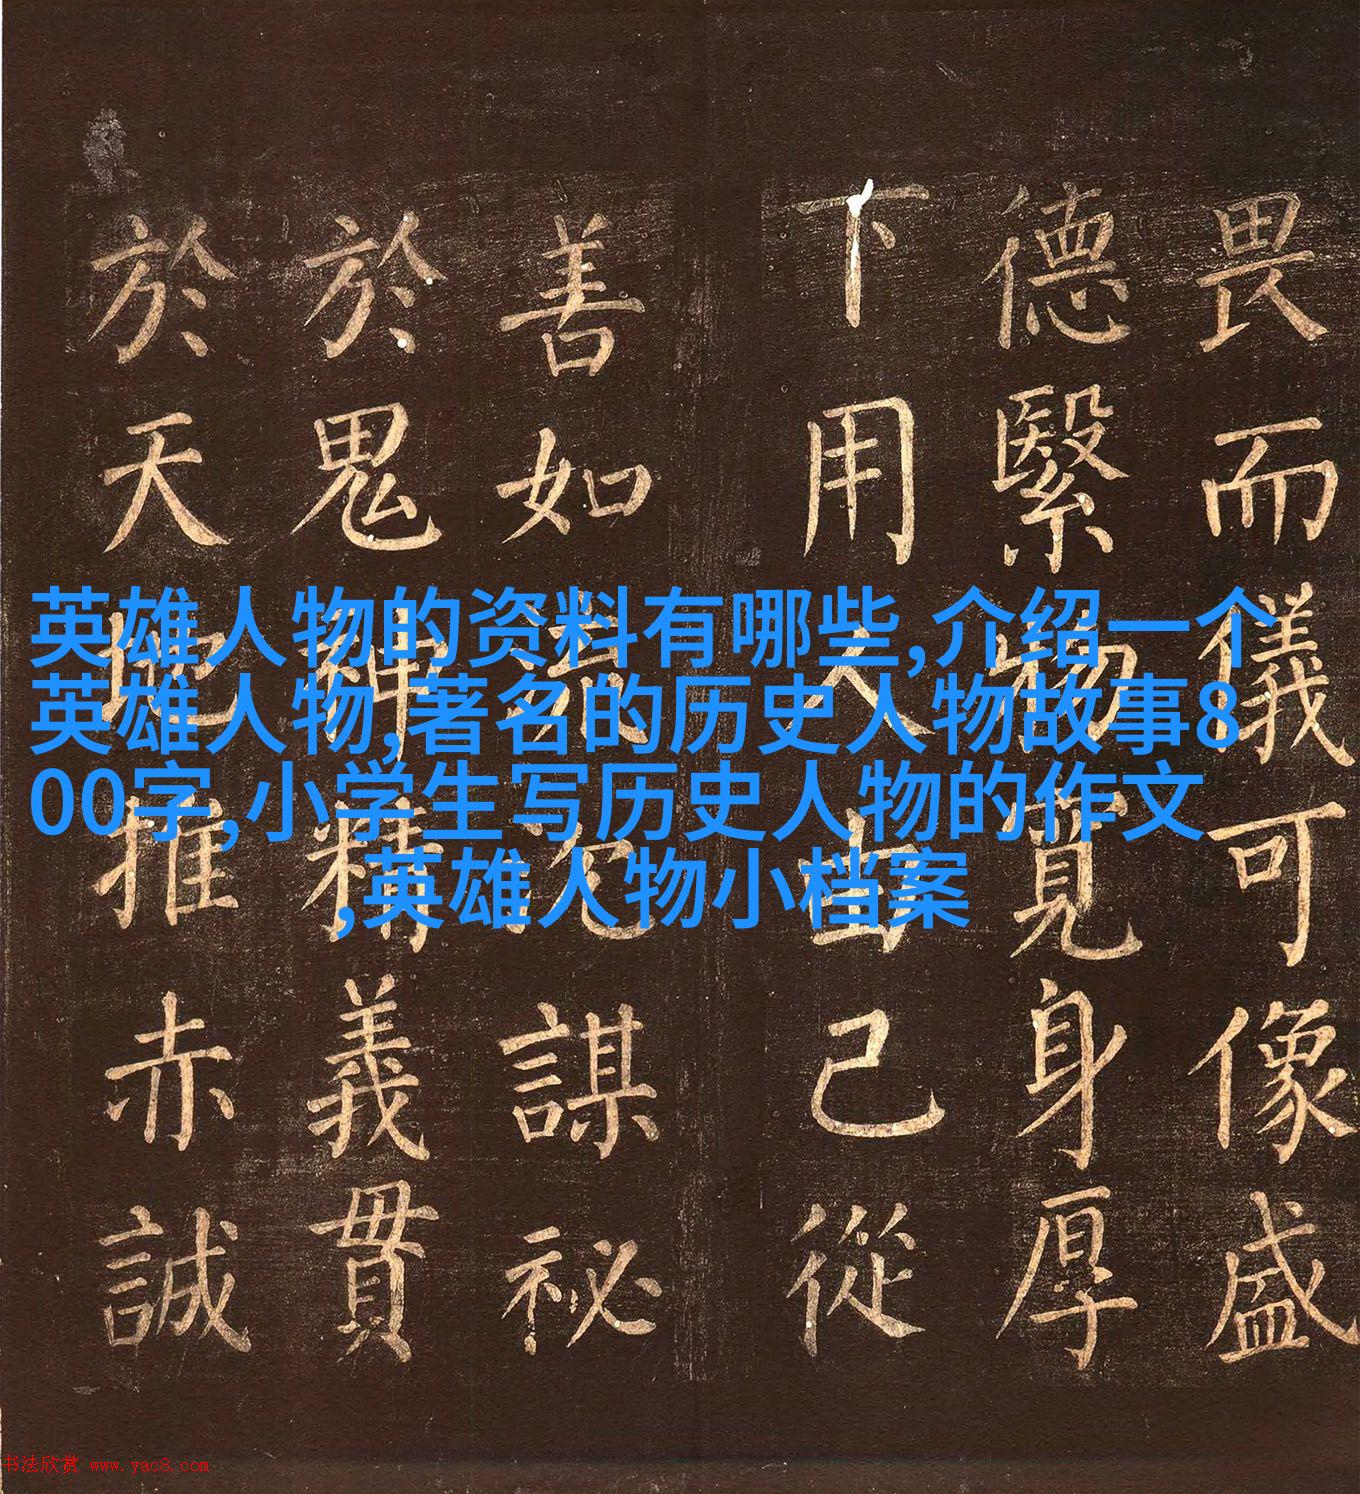 英雄人物的资料有哪些,介绍一个
英雄人物,著名的历史人物故事8
00字,小学生写历史人物的作文
,英雄人物小档案
畏而儀可像盛
德繄物寬身厚
下用人由己從
善如流沉謀祕
於鬼神精義貫
於天地推赤誠
书法欣赏 www.yac8.com